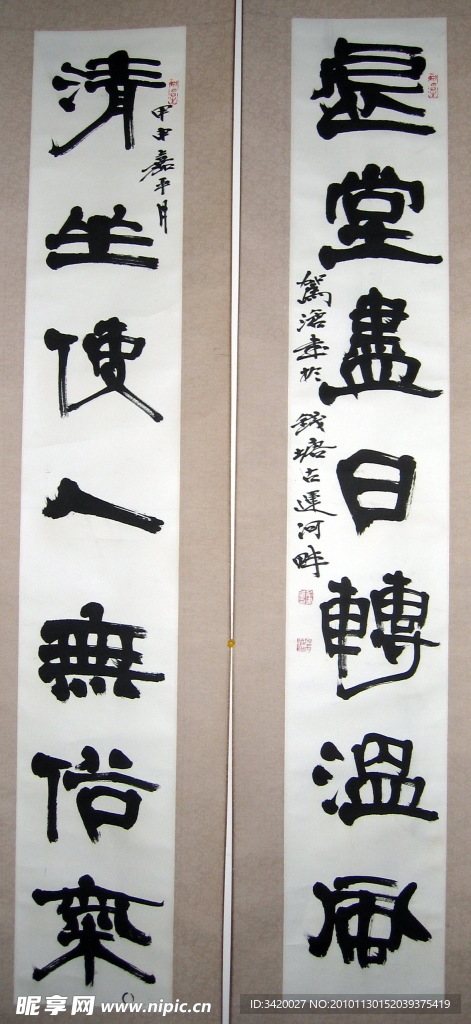 虛堂盡日轉溫風
書於錢塘古運河畔
甲申嘉平月
清坐使人無俗氣
昵享网 www.nipic.cn
ID:3420027 NO:20101130152039375419